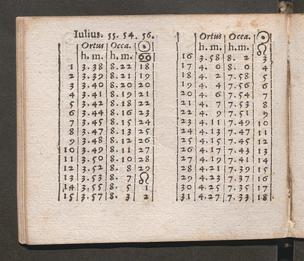 Iulius. 53. 54. 56.
Ortus Occa. ☉
h. m. h. m. ♋
1 3.38 8.22 18
2 3.39 8.21 19
3 3.40 8.20
4 3.41 8.19
5 3.42 8.18
6 3.44 8.16
7 3.45 8.15 24
8 3.47 8.13 25
9 3.48 8.12 26
10 3.49 8.11 27
11 3.50 8.10 28
12 3.52 8. 8 29
13 3.53 8. 7 ♌
14 3.55 8. 5 1
15 3.57 8. 3 2
Ortus Occa. ☉
h. m. h. m. ♌
16 3.58 8. 2 3
17 4. 0 8. 0 4
18 4. 2 7.58 5
19 4. 4 7.56 6
20 4. 6 7.54 7
21 4. 7 7.53 8
22 4. 9 7.51 9
23 4.11 7.49 10
24 4.13 7.47 11
25 4.15 7.45 12
26 4.17 7.43 13
27 4.19 7.41
28 4.21 7.39 15
29 4.23 7.37 16
30 4.25 7.35 17
31 4.27 7.33 18